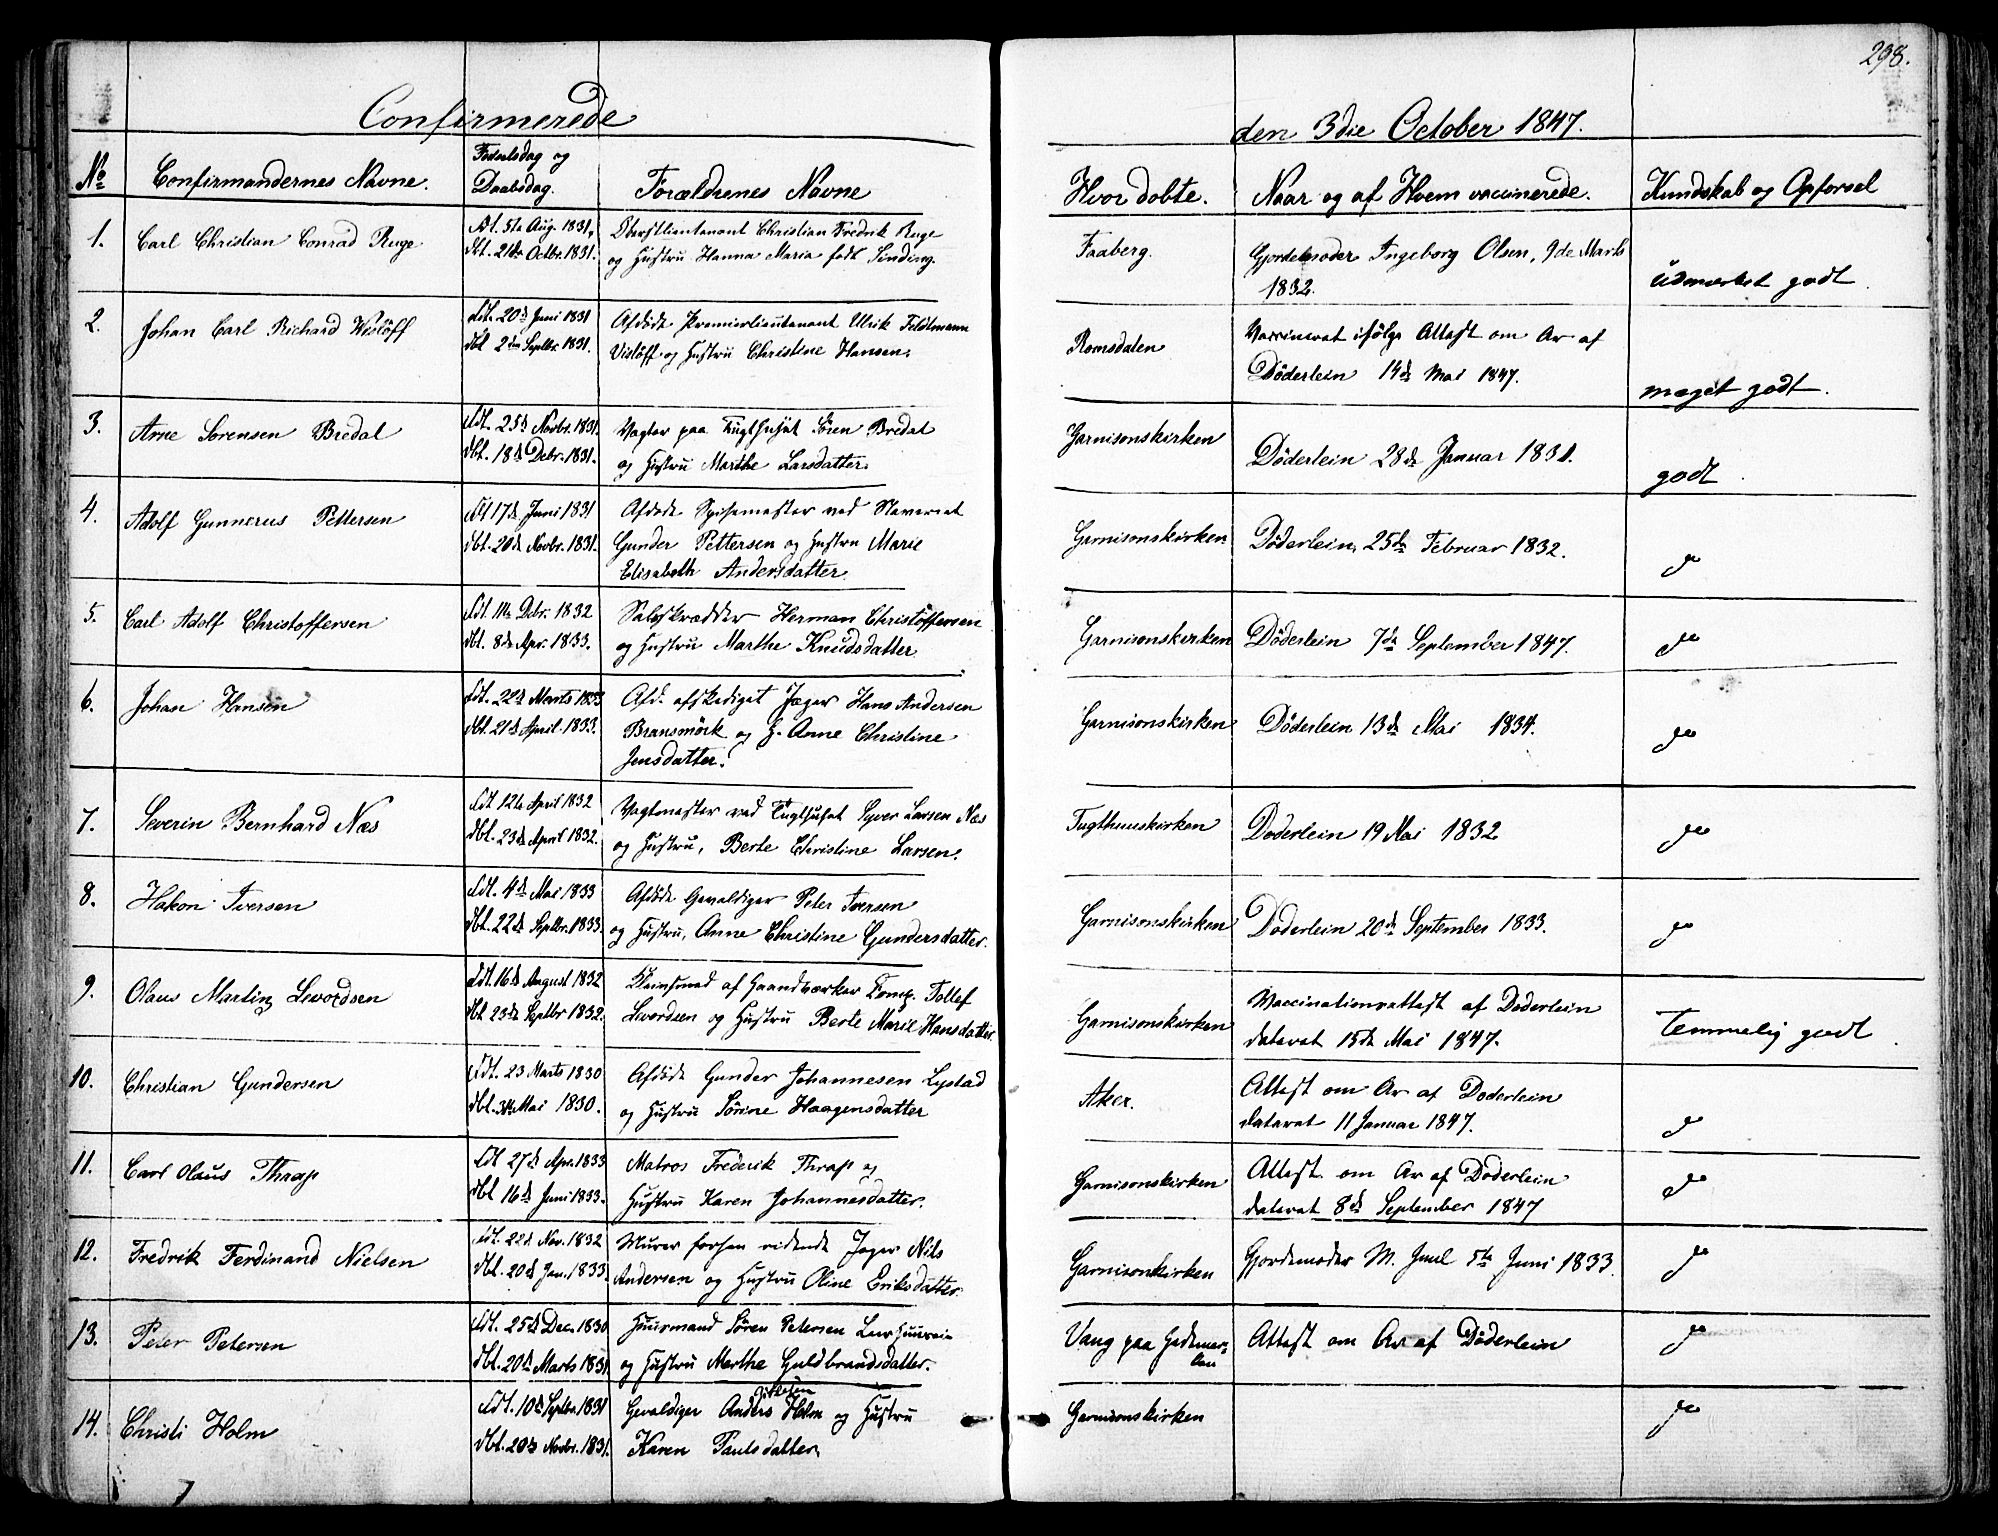 298.
Confirmerede den 3die October 1847.
No Confirmandernes Navne. Fødselsdag og Daabsdag. Forældrenes Navne Hvor döbte. Naar og af Hvem vaccinerede. Kundskab og Opforsel
1. Carl Christian Conrad Ruge
fdt. 5te Aug. 1831.
dbt. 21de Octbr. 1831.
Oberstlieutenant Christian Fredrik Ruge
og Hustru Hanna Maria født Sinding.
Faaberg.
Gjordemoder Ingeborg Olsen, 9de Marts
1832.
üdmærket godt.
2. Johan Carl Richard Wislöff
fdt. 20de Juni 1831
dbt 2den Septbr. 1831.
Afdöde Premierlieutenant Ulrik Feldtmann
Vislöff og Hustru Christine Hansen.
Romsdalen
Vaccineret ifölge Attest om Ar af
Döderlein 14de Mai 1847.
meget godt.
3. Arne Sörensen Bredal
fdt. 25de Novbr. 1831.
dbt. 18de Debr. 1831.
Vagter paa Tugthuset Sören Bredal
og Hustru Marthe Larsdatter.
Garnisonskirken
Döderlein 28de Januar 1831.
godt.
4. Adolf Gunnerus Pettersen
fdt 17de Juni 1831
dbt. 20de Novbr. 1831.
Afdöde Spisemester ved Slaveriet
Gunder Pettersen og Hustru Marie
Elisabeth Andersdatter.
Garnisonskirken
Döderlein, 25de Februar 1832.
do
5. Carl Adolf Christoffersen
fdt. 11te Debr. 1832
dbt. 8de Apr. 1833.
Herman Christöffersen
og Hustru Marthe Knudsdatter
Garnisonskirken
Döderlein 7de September 1847.
do
6. Johan Hansen
fdt. 22de Marts 1833
dbt. 21de April 1833.
Afd. afskediget Jæger Hans Andersen
Bransmörk og H. Anne Christine
Jensdatter.
Garnisonskirken
Döderlein 13de Mai 1834.
do
7. Severin Bernhard Næs
fdt 12te April 1832
dbt. 23de April 1832.
Vagtmester ved Tugthuset Syver Larsen Næs
og Hustru, Berte Christine Larsen.
Tugthuuskirken
Döderlein 19 Mai 1832
do
8. Hakon Iversen
fdt. 4de Mai 1833
dbt. 22de Septbr. 1833.
Afdöde Gevaldiger Peter Iversen
og Hustru, Anne Christine Gundersdatter.
Garnisonskirken
Döderlein 20de September 1833.
do
9. Olaus Martin Levordsen
fdt. 16de August 1832
dbt 23de Septbr 1832.
Kleinsmed af Haandværker Comp. Tollef
Levordsen og Hustru Berte Marie Hansdatter.
Garnisonskirken
Vaccinationsattest af Döderlein
dateret 15de Mai 1847.
Temmelig godt.
10. Christian Gundersen
fdt. 23 Marts 1830
dbt. Mai 1830.
Afdöde Gunder Johannesen Lystad
og Hustru Sörine Haagensdatter
Aker.
Attest om Ar af Döderlein
dateret 11 Januar 1847.
do
11. Carl Olaus Thrap
fdt 27de Apr. 1833
dbt 16de Juni 1833.
Matros Frederik Thrap og
Hustru Karen Johannesdatter.
Garnisonskirken
Attest om Ar af Döderlein
dateret 8de September 1847
do
12. Fredrik Ferdinand Nielsen
fdt. 22de Nov. 1832
dbt. 20de Jan. 1833.
Murer forhen ridende Jæger Nils
Andersen og Hustru Oline Eriksdatter.
Garnisonkirken
Gjordemoder M. Juul 5te Juni 1833.
do
13. Peter Petersen
fdt. 25de Dec. 1830
dbt. 20de Marts 1831.
Huusmand Sören Petersen
og Hustru Marthe Guldbrandsdatter.
Vang paa Hedemarken
Attest om Ar af Döderlein
do
14. Christi Holm
fdt. 10de Septbr. 1831
dbt. 20de Novbr. 1831.
Gevaldiger Anders Holm og Hustru
Karen Paulsdatter
Garnisonskirken
do